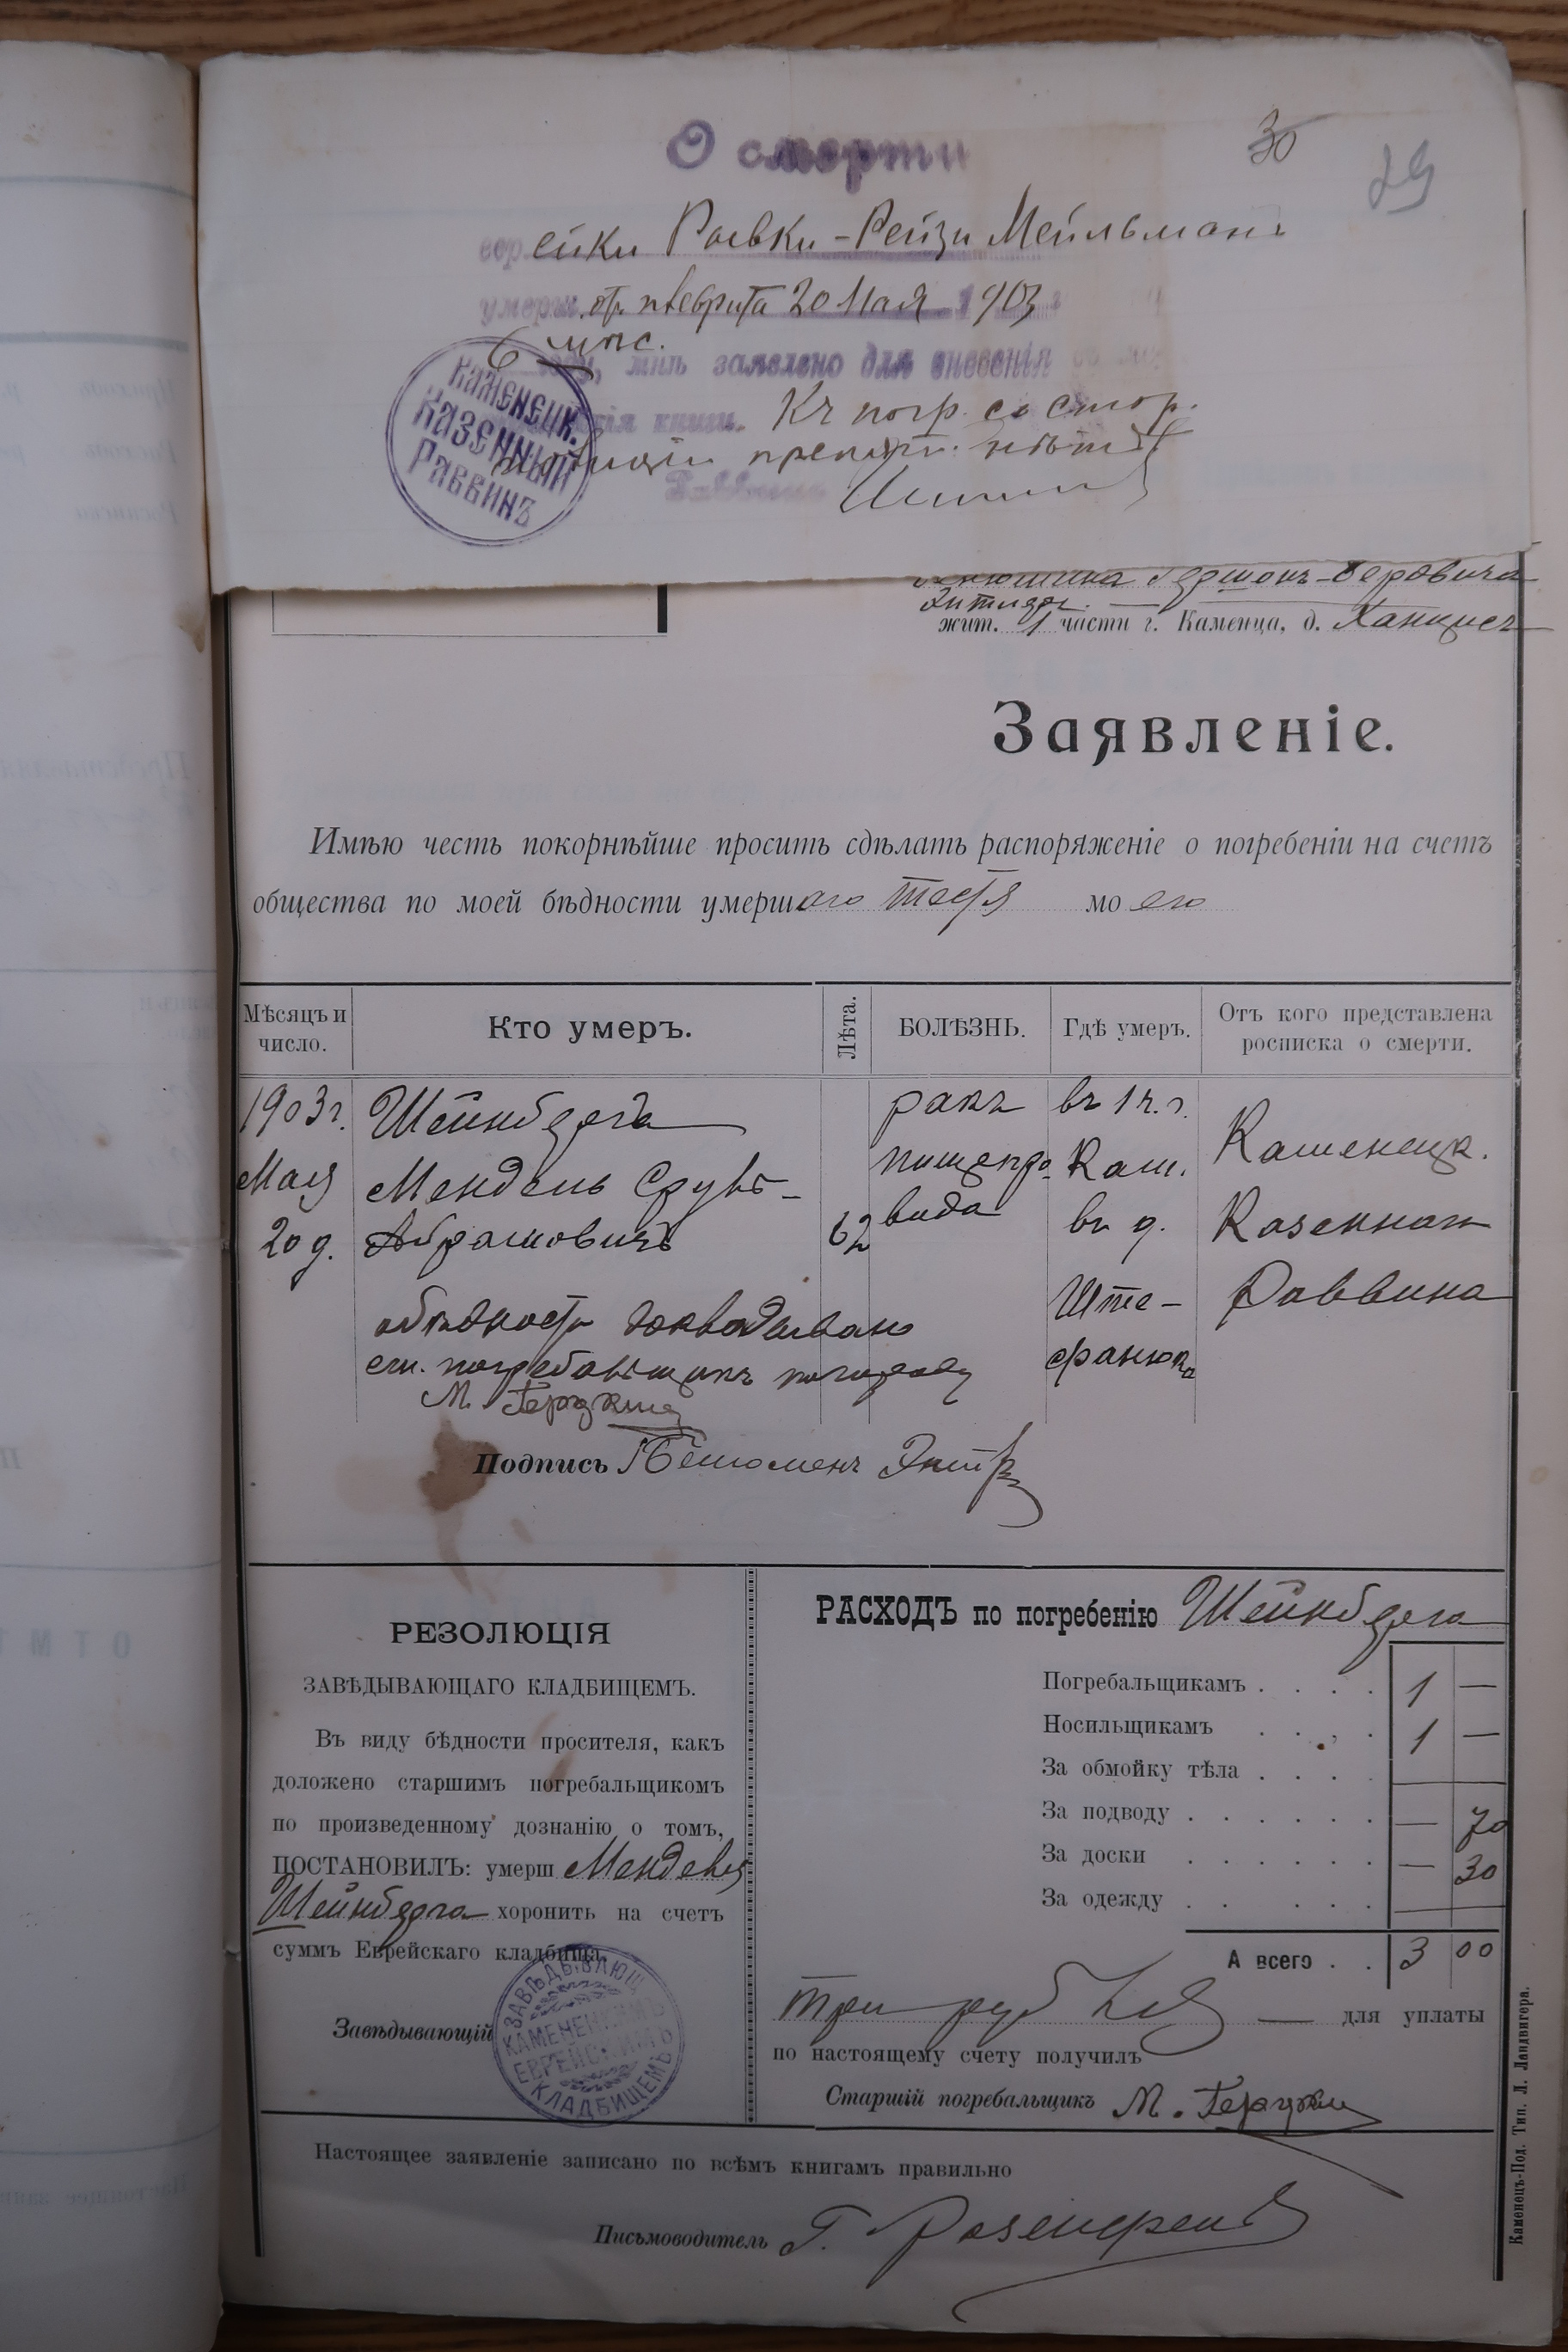 О смерти
30
29
еврейки Ривки-Рейзи Мейльманъ
умерш. от плеврита 20 Мая 1903
6 мѣс.
году, мнѣ заявлено для внесенія
книги. Къ погр. со стор.
полиціи препятс. нѣтъ
Раввинъ
КАМЕНЕЦК.
КАЗЕННЫЙ
РАВВИНЪ
Гершонъ-Беровича
жит. 1 части г. Каменца, д.
Заявленіе.
Имѣю честь покорнѣйше просить сдѣлать распоряженіе о погребеніи на счетъ
общества по моей бѣдности умершаго тестя моего
Мѣсяцъ и число. Кто умеръ. Лѣта. БОЛѢЗНЬ. Гдѣ умеръ. Отъ кого представлена росписка о смерти.
1903 г. Шейнберга ракъ въ 1 ч. г. Каменецк.
Мая Мендель Сруль- пищепро- Кам.
20 д. Абрамовичъ 62 вода въ д. Казеннаго
Ште- Раввина
фанюка
М. Герцкис
Подпись
РЕЗОЛЮЦІЯ
ЗАВѢДЫВАЮЩАГО КЛАДБИЩЕМЪ.
Въ виду бѣдности просителя, какъ
доложено старшимъ погребальщикомъ
по произведенному дознанію о томъ,
ПОСТАНОВИЛЪ: умерш Менделя
Шейнберга хоронить на счетъ
суммъ Еврейскаго кладбища.
Завѣдывающій
ЗАВѢДЫВАЮЩ.
КАМЕНЕЦКИМЪ
ЕВРЕЙСКИМЪ
КЛАДБИЩЕМЪ
РАСХОДЪ по погребенію Шейнберга
Погребальщикамъ . . . . 1 —
Носильщикамъ . . . . 1 —
За обмойку тѣла . . . .
За подводу . . . . . . — 70
За доски . . . . . . — 30
За одежду . . . . . .
А всего . . 3 00
три руб — для уплаты
по настоящему счету получилъ
Старшій погребальщикъ М. Герцкис
Настоящее заявленіе записано по всѣмъ книгамъ правильно
Письмоводитель Г. Розенфельд
Каменецъ-Под. Тип. Л. Ландвигера.